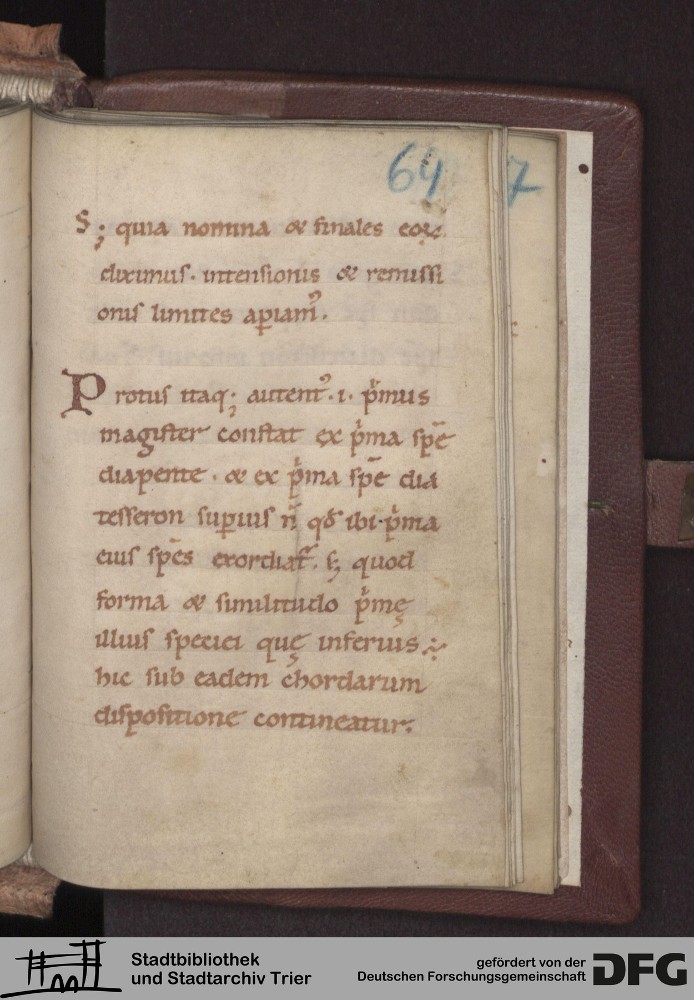 64 7
S; quia nomina & finales eoꝝ
diximus. intensionis & remissi
onis limites ap̲iam᾿.
Protus itaq; autent᾿. i. p̓mus
magister constat ex p̓ma spē
diapente. & ex p̓ma spē dia
tesseron sup̲ius ñ qđ ibi p̓ma
eius spēs exordiat᾿. sꝫ quod
forma & similitudo p̓mę
illius speciei quę inferius :
hic sub eadem chordarum
dispositione contineatur.
Stadtbibliothek
und Stadtarchiv Trier
gefördert von der
Deutschen Forschungsgemeinschaft
DFG